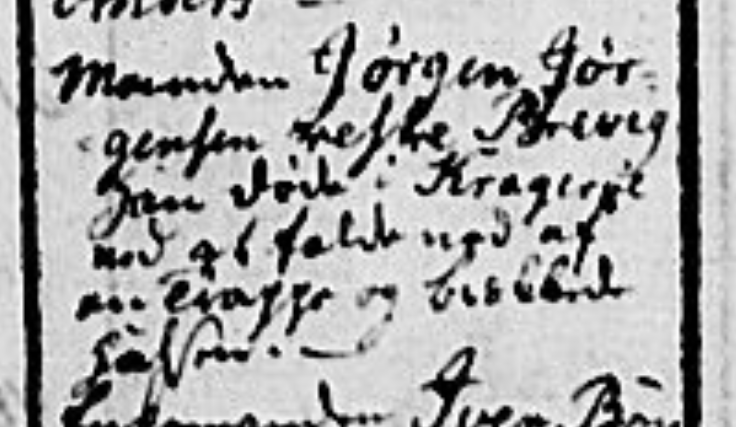 Manden Jørgen Jør-
gensen vestre Brevig
han døde i Kragerøe
ved at falde ned af
en Trappe og brekkede
halsen. —
Enkemanden Iver